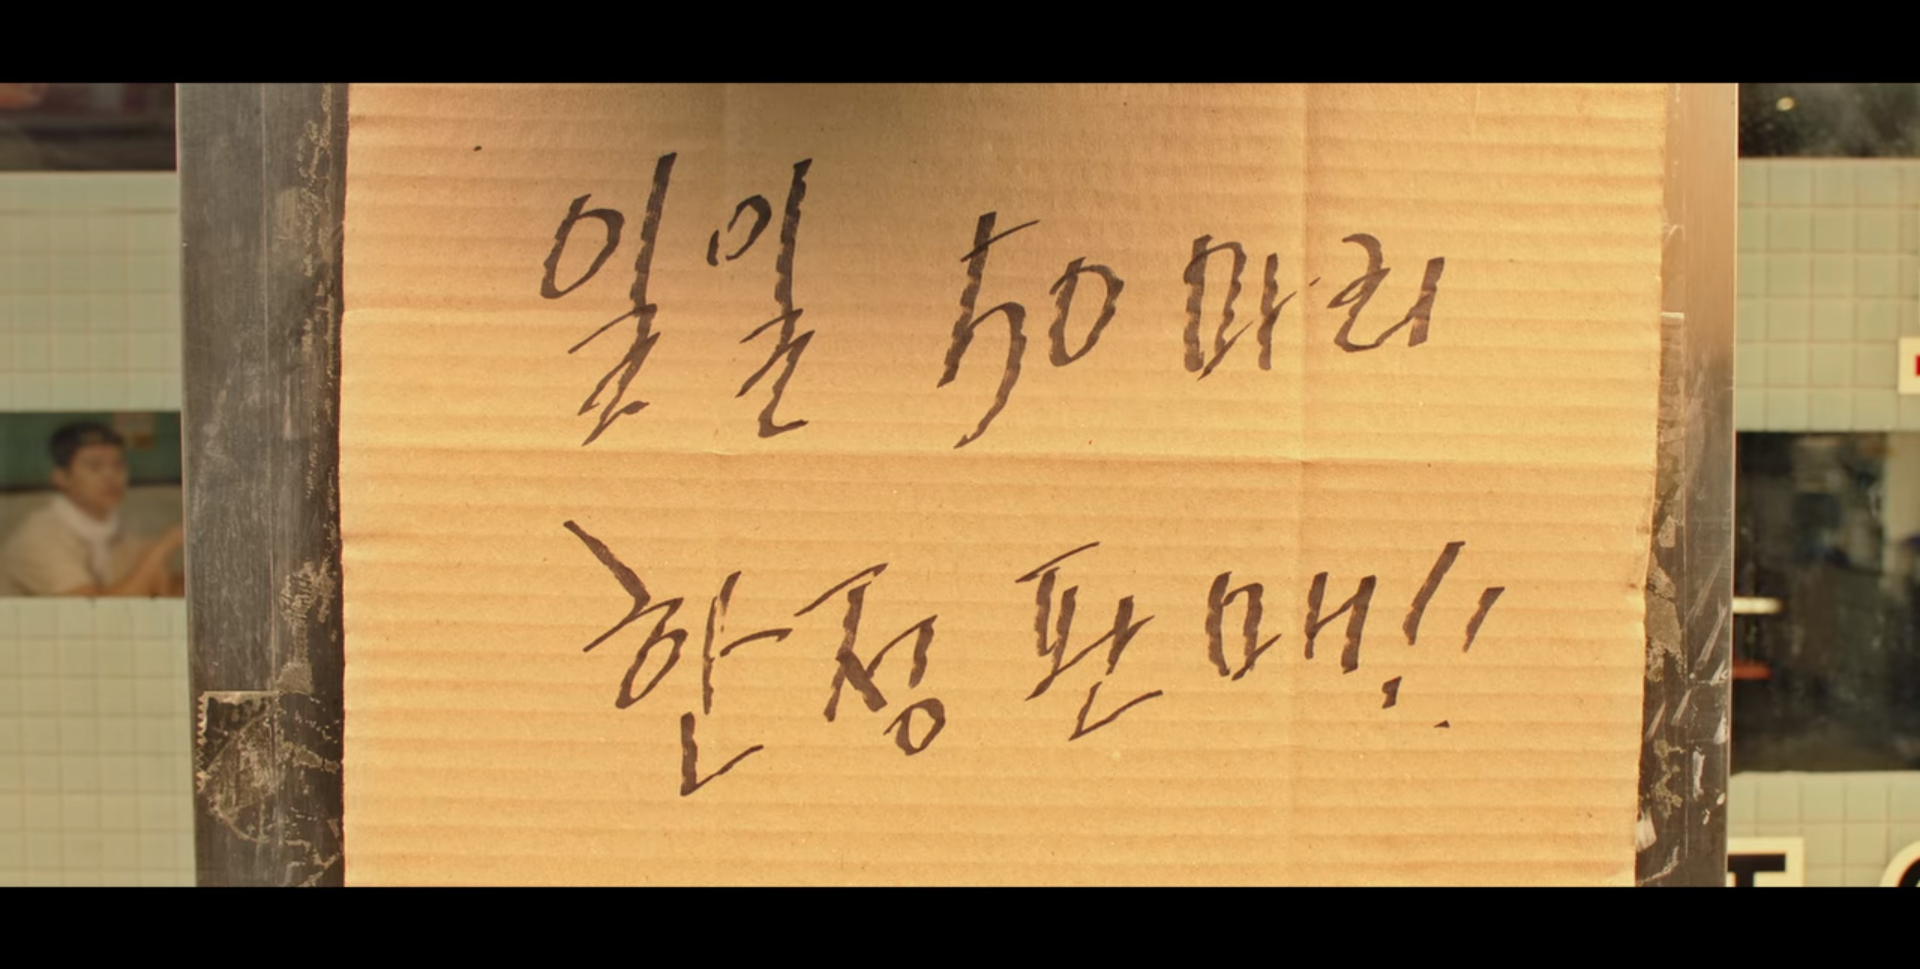 일일 50마리
한정 판매!!
T